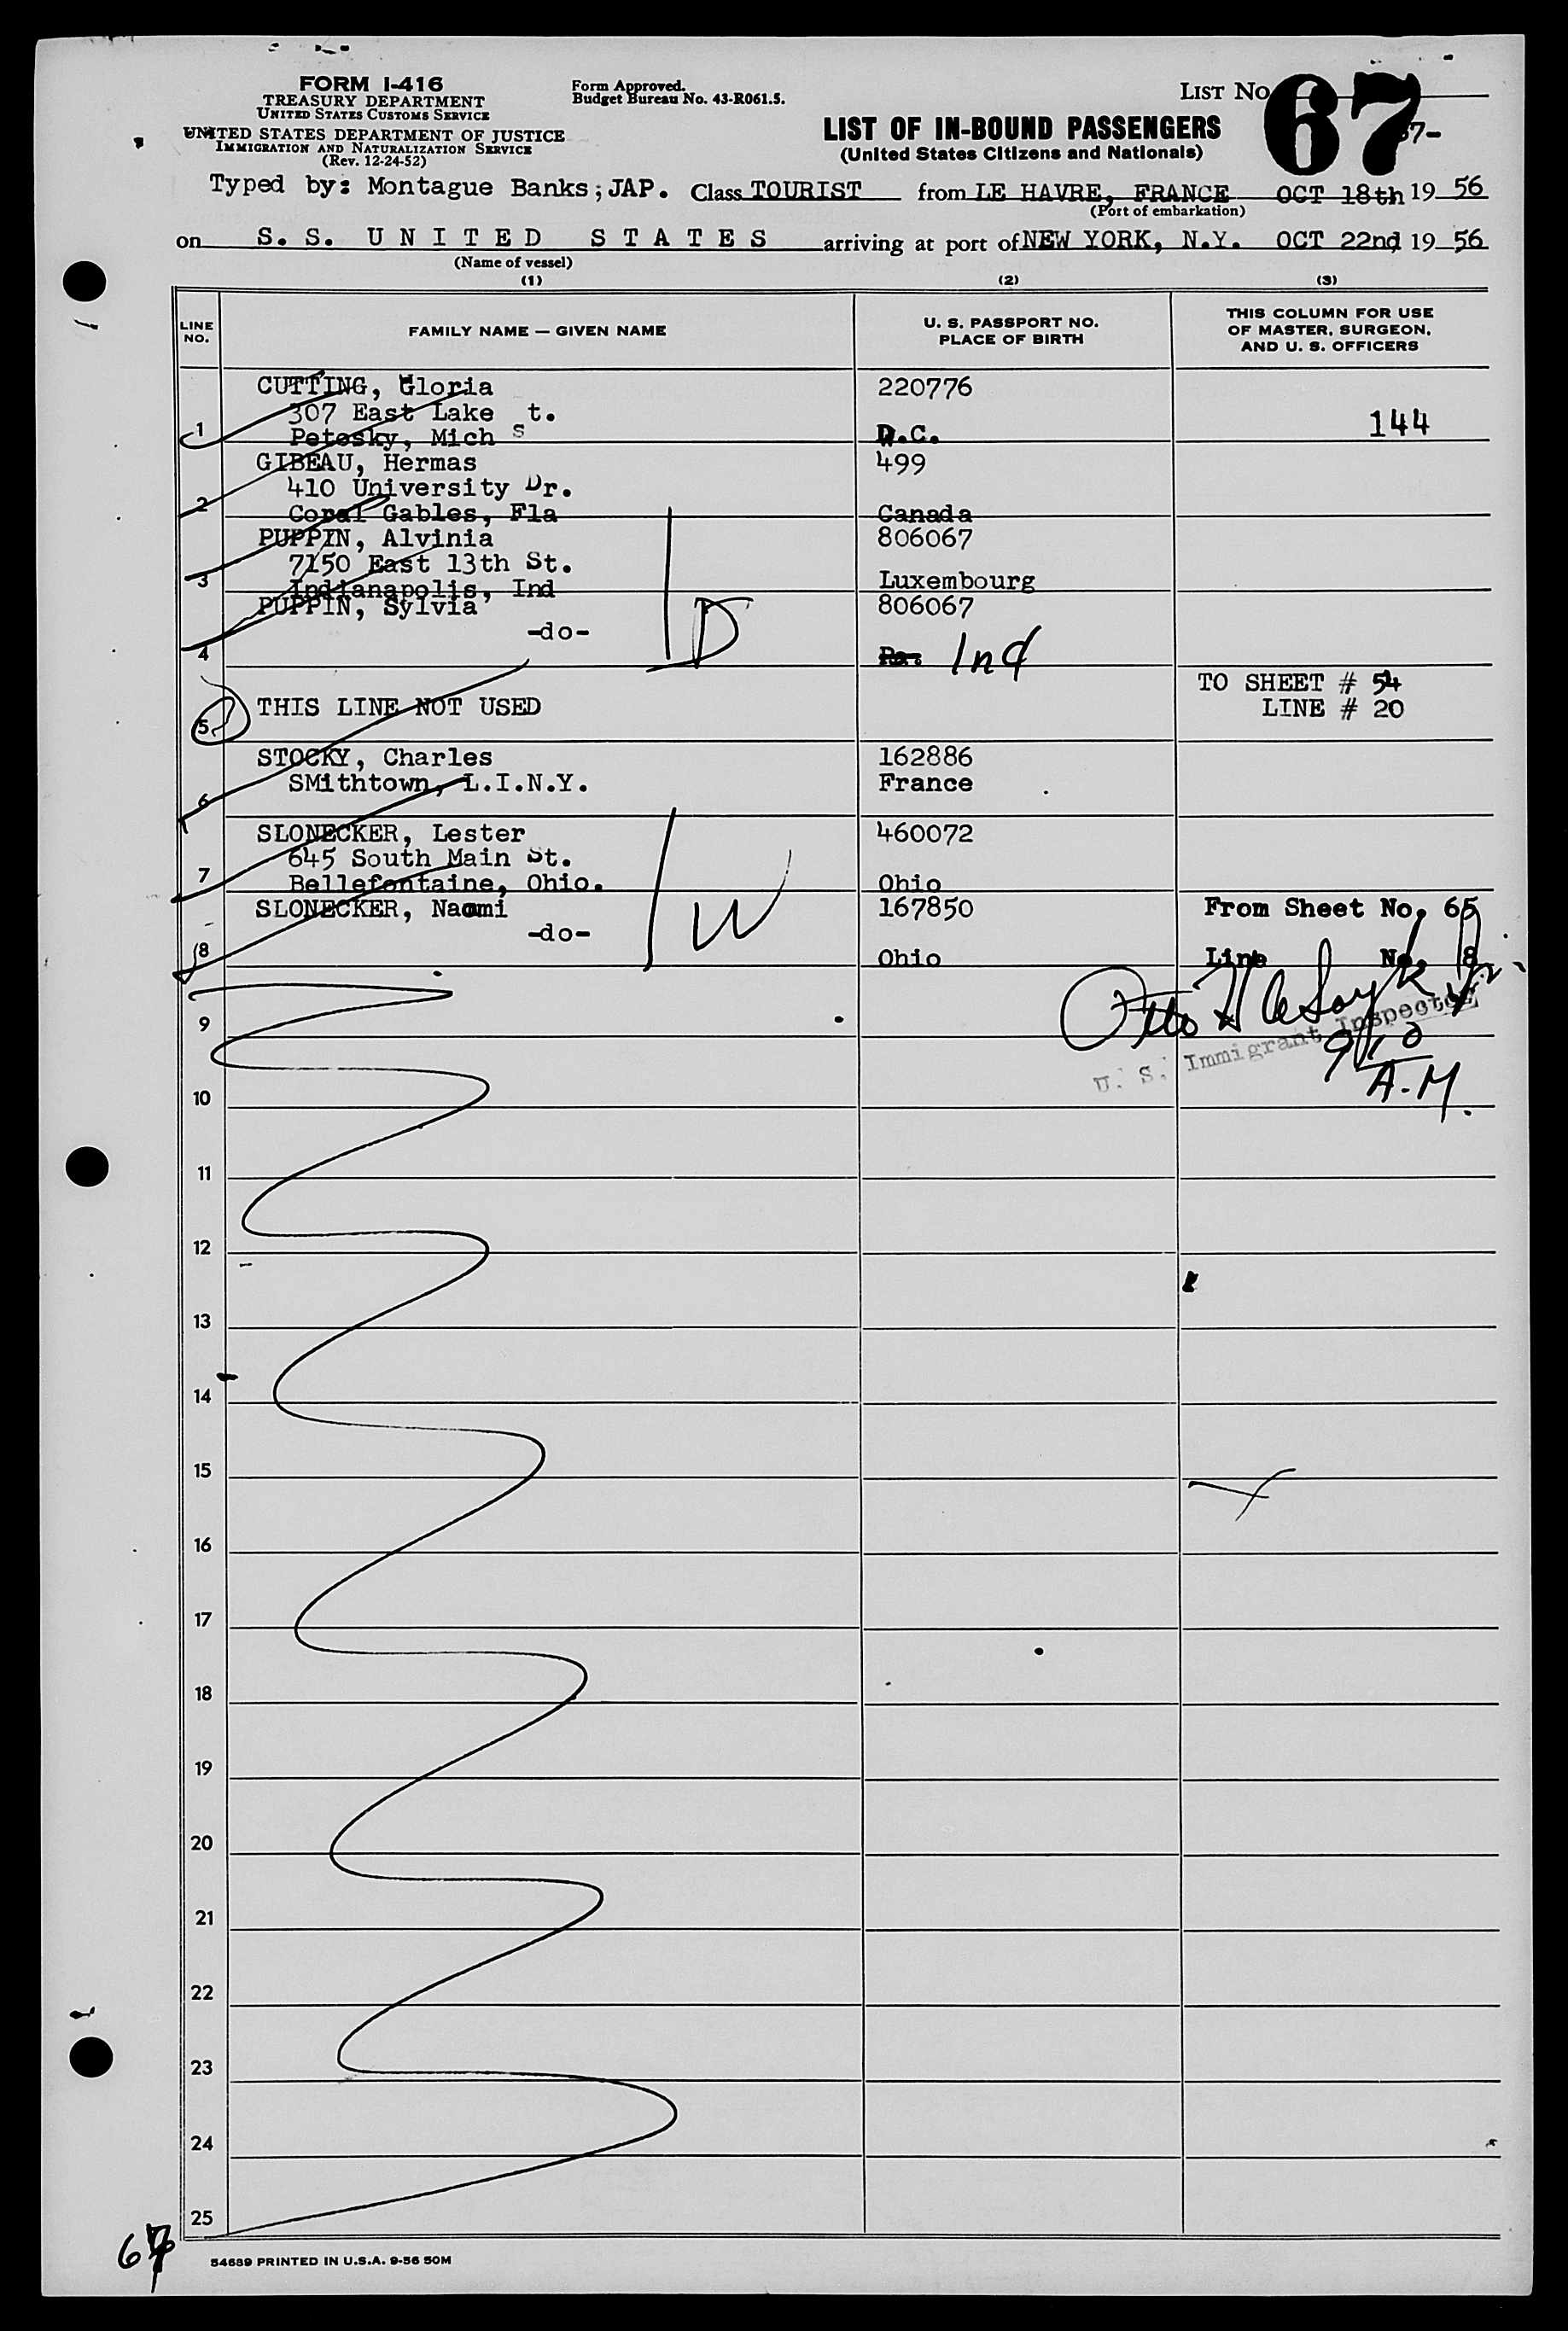 FORM I-416
TREASURY DEPARTMENT
UNITED STATES CUSTOMS SERVICE
UNITED STATES DEPARTMENT OF JUSTICE
IMMIGRATION AND NATURALIZATION SERVICE
(Rev. 12-24-52)
Form Approved.
Budget Bureau No. 43-R061.5.
LIST NO. 67
67-
LIST OF IN-BOUND PASSENGERS
(United States Citizens and Nationals)
Typed by: Montague Banks; JAP. Class TOURIST from LE HAVRE, FRANCE OCT 18th 19 56
(Port of embarkation)
on S. S. UNITED STATES arriving at port of NEW YORK, N.Y. OCT 22nd 19 56
(Name of vessel)
(1) (2) (3)
LINE NO.
FAMILY NAME — GIVEN NAME
U. S. PASSPORT NO.
PLACE OF BIRTH
THIS COLUMN FOR USE
OF MASTER, SURGEON,
AND U. S. OFFICERS
CUTTING, Gloria 220776
307 East Lake St.
1 Petosky, Mich D.C. 144
GIBEAU, Hermas 499
410 University Dr.
2 Coral Gables, Fla Canada
PUPPIN, Alvinia 806067
7150 East 13th St.
3 Indianapolis, Ind Luxembourg
PUPPIN, Sylvia 806067
-do- D
4 Pa. Ind
TO SHEET # 54
5 THIS LINE NOT USED LINE # 20
STOCKY, Charles 162886
SMithtown, L.I.N.Y. France
6
SLONECKER, Lester 460072
645 South Main St.
7 Bellefontaine, Ohio. Ohio
SLONECKER, Naomi 167850 From Sheet No. 65
-do- W
8 Ohio Line No. 8
9
U. S. Immigrant Inspector
9 10
A.M.
10
11
12
13
14
15
16
17
18
19
20
21
22
23
24
25
67
54689 PRINTED IN U.S.A. 9-56 50M